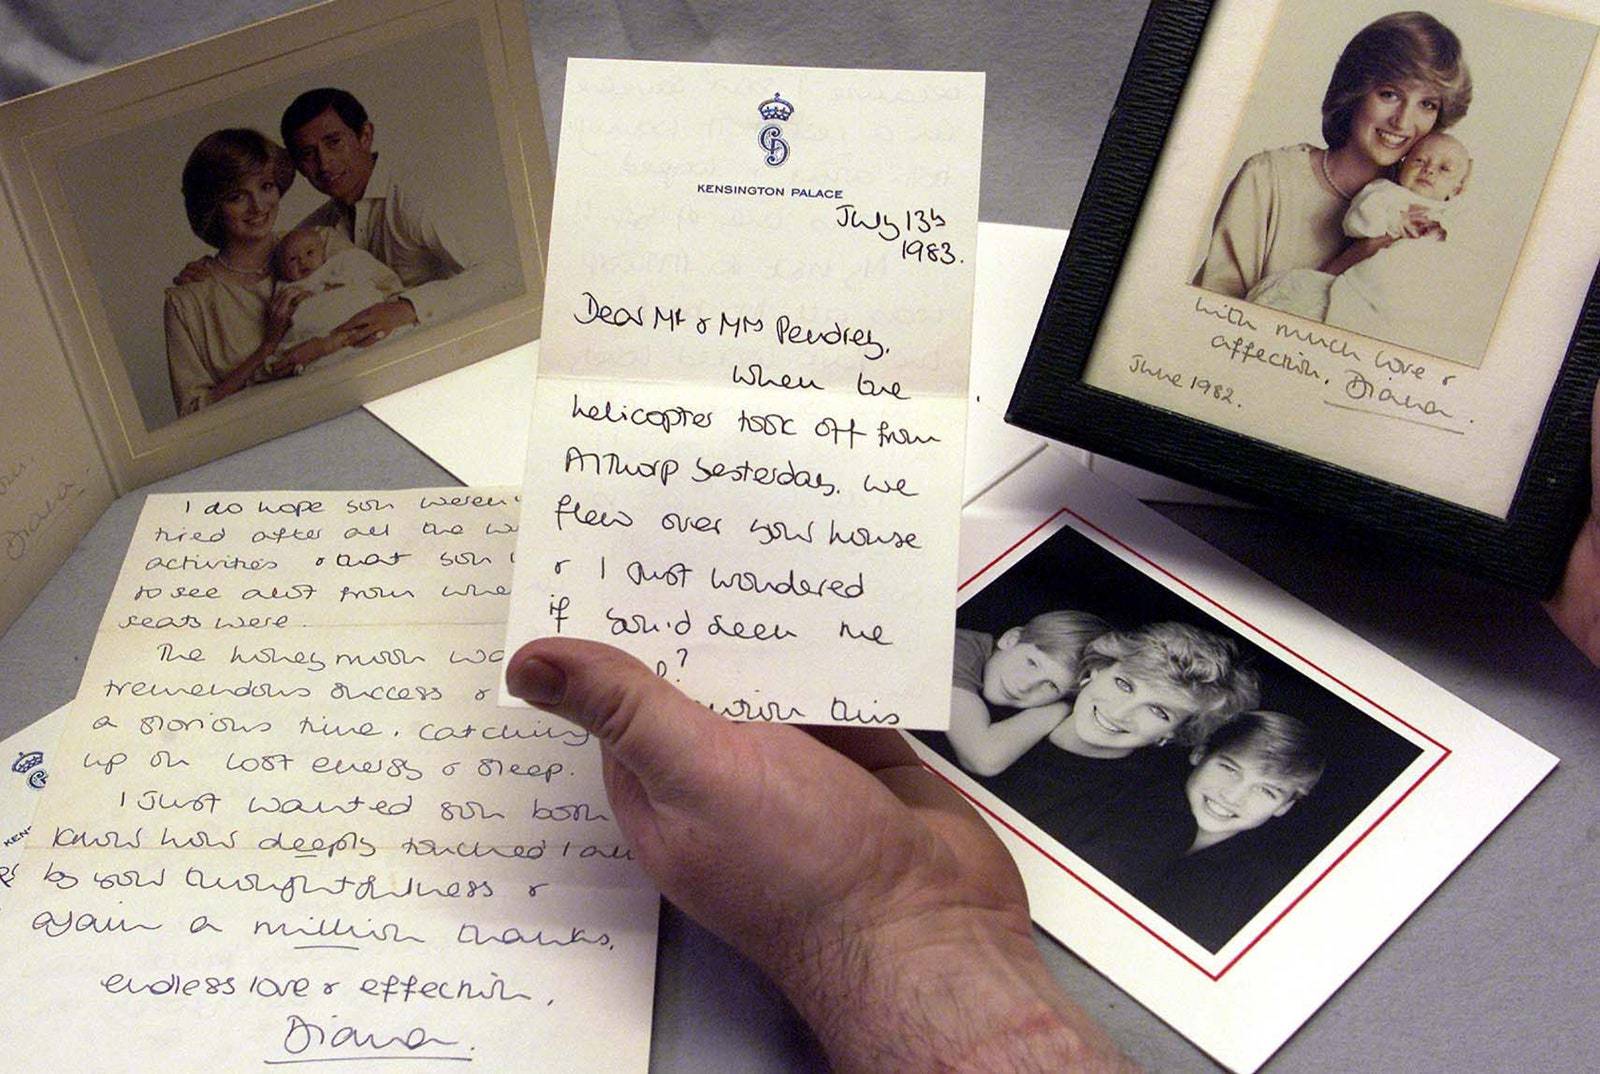 KENSINGTON PALACE
July 13th
1983.
Dear Mr & Mrs Pendrey,
When the
helicopter took off from
Althorp yesterday, we
flew over your house
& I just wondered
if you'd seen me
?
this
I do hope you weren't
tired after all the
activities & that you
to see alot from
seats were.
The honeymoon
tremendous success &
a glorious time, catching
up on lost energy & sleep.
I just wanted you both
know how deeply touched I am
by your thoughtfulness &
again a million thanks,
endless love & affection,
Diana.
with much love &
affection, Diana.
June 1982.
Diana
KEN